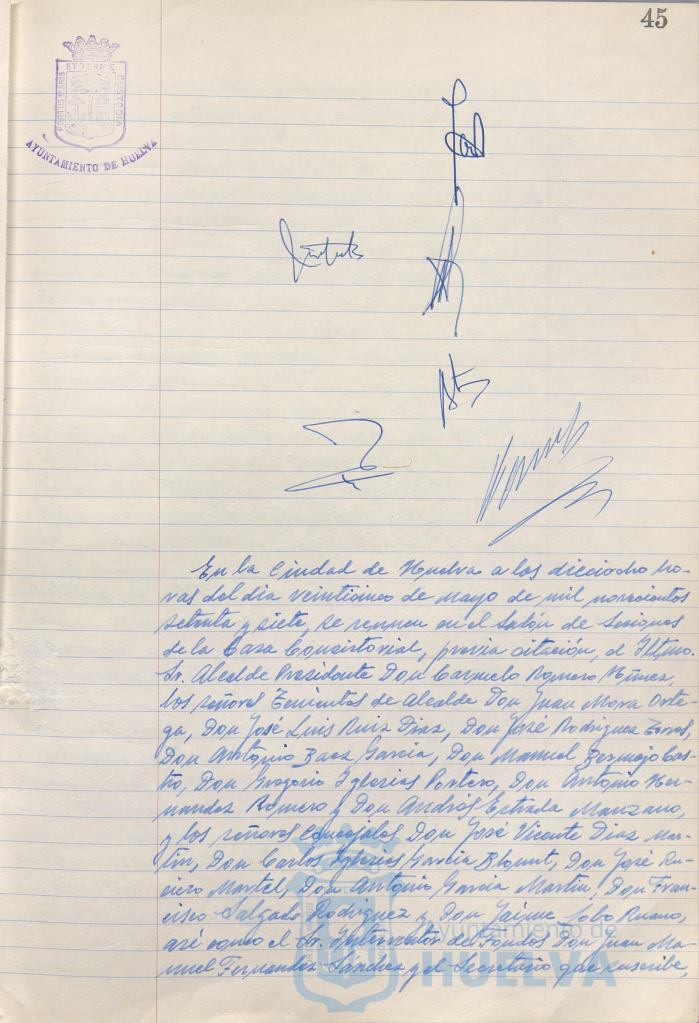 45
ET TERRÆ
CUSTODIA
AYUNTAMIENTO DE HUELVA
En la Ciudad de Huelva a los dieciocho ho-
ras del dia veinticinco de Mayo de mil novecientos
setenta y siete, se reunen en el Salón de Sesiones
de la Casa Consistorial, previa citación, el Iltmo.
Sr. Alcalde Presidente Don Carmelo Romero Núñez,
los señores Tenientes de Alcalde Don Juan Mora Orte-
ga, Don José Luis Ruiz Diaz, Don José Rodriguez
Don Antonio Baez Garcia, Don Manuel Bermejo Cas-
tro, Don Gregorio Iglesias Portero, Don Antonio Her-
nandez Romero y Don Andrés Estrada Manzano,
y los señores Concejales Don José Vicente Diaz Mar-
tin, Don Carlos Iglesias Garcia Blount, Don José Ru-
ciero Martel, Don Antonio Garcia Martin, Don Fran-
cisco Salgado Rodriguez y Don Jaime Lobo Ruano,
asé como el Sr. Interventor de Fondos Don Juan Ma-
nuel Fernandez Sánchez y el Secretario que suscribe,
Ayuntamiento de
HUELVA